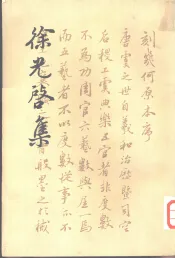 徐光啓集
刻幾何原本序
唐虞之世自羲和治曆暨司空
后稷工虞典樂五官者非度數
不爲功周官六藝數與居一焉
而五藝者不以度數從事亦不
般墨之於械